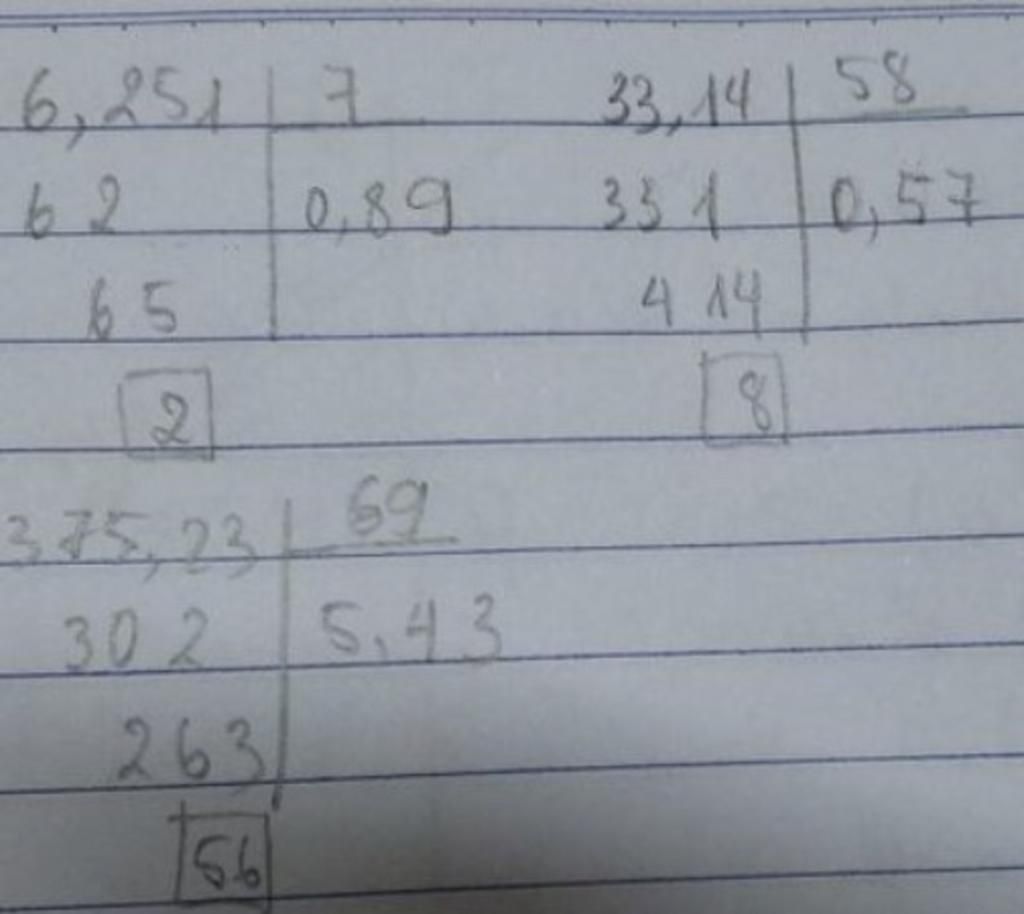 6,251 7 33,14 58
62 0,89 331 0,57
65 414
2 8
375,23 69
302 5,43
263
56